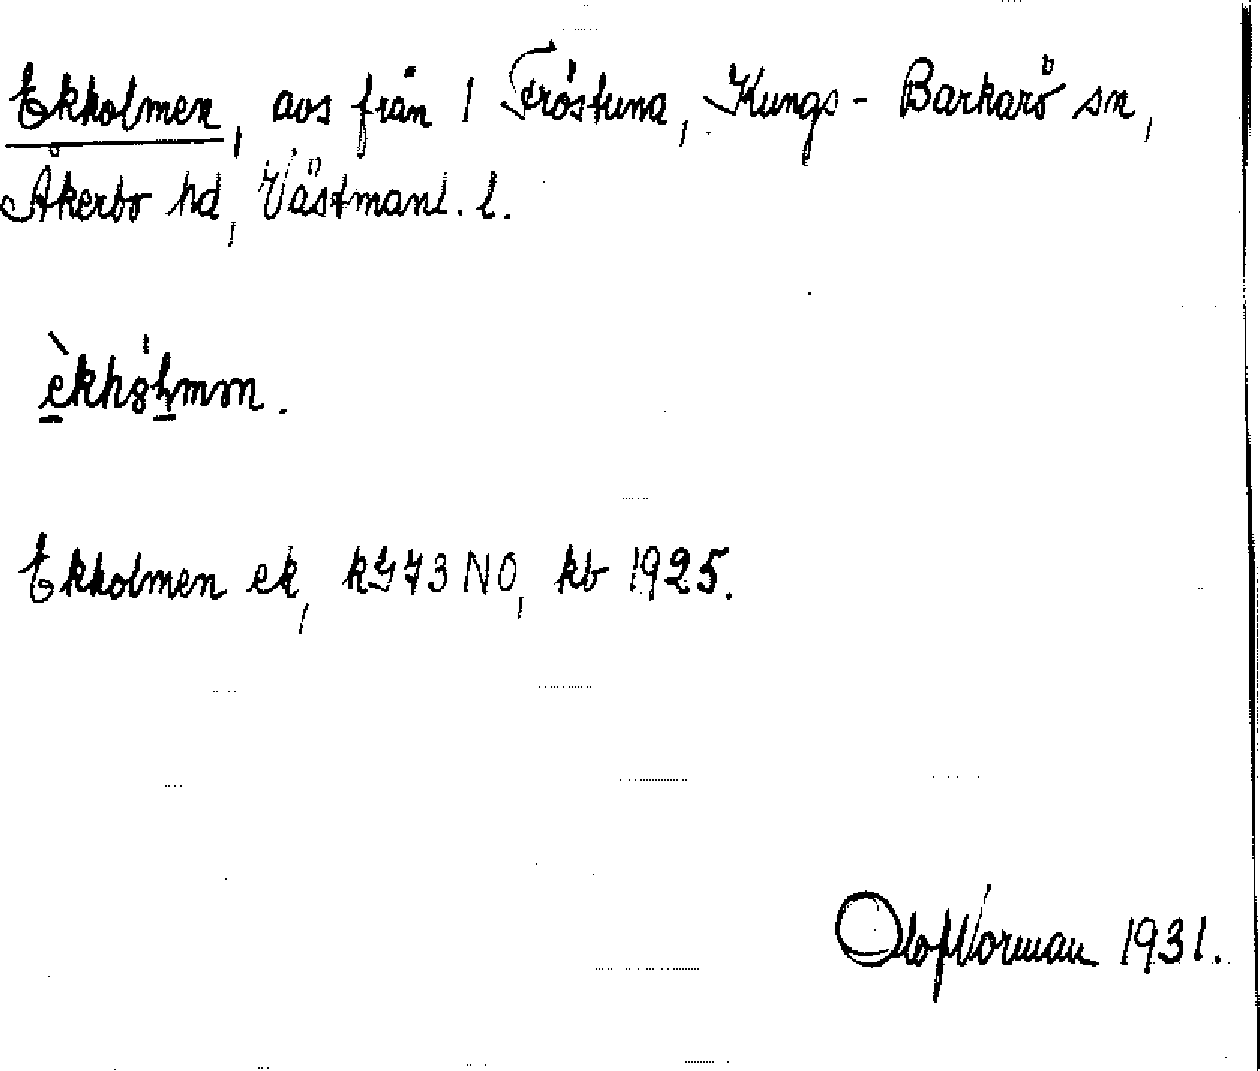 Ekholmen, avs från 1 Fröstuna, Kungs-Barkarö sn,
Åkerbo hd, Västmanl. l.
Ekholmen ek, kJ73 NO, kb 1925.
Olof Norman 1931.